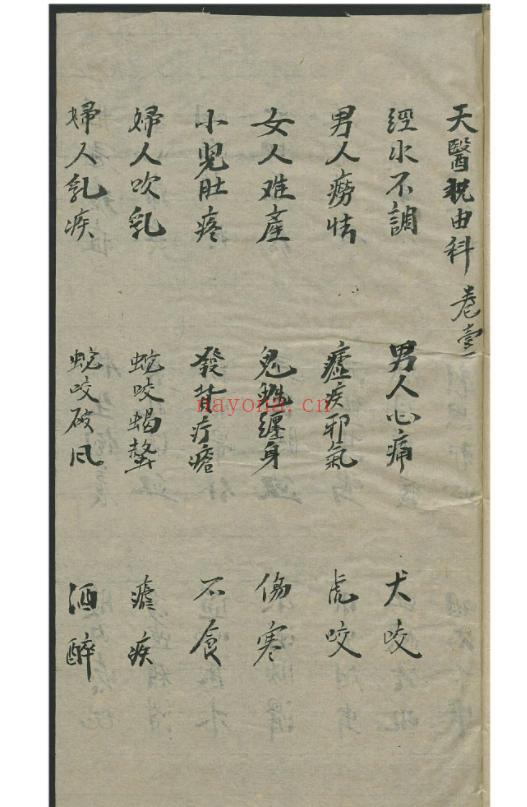 天醫祝由科 卷壹
經水不調 男人心痛 犬咬
男人癆怯 瘧疾邪氣 虎咬
女人难產 鬼魁纏身 傷寒
小児肚疼 發背疔瘡 不食
婦人吹乳 蛇咬蝎螫 瘧疾
婦人乳疾 蛇咬破风 酒醉
nayona.cn